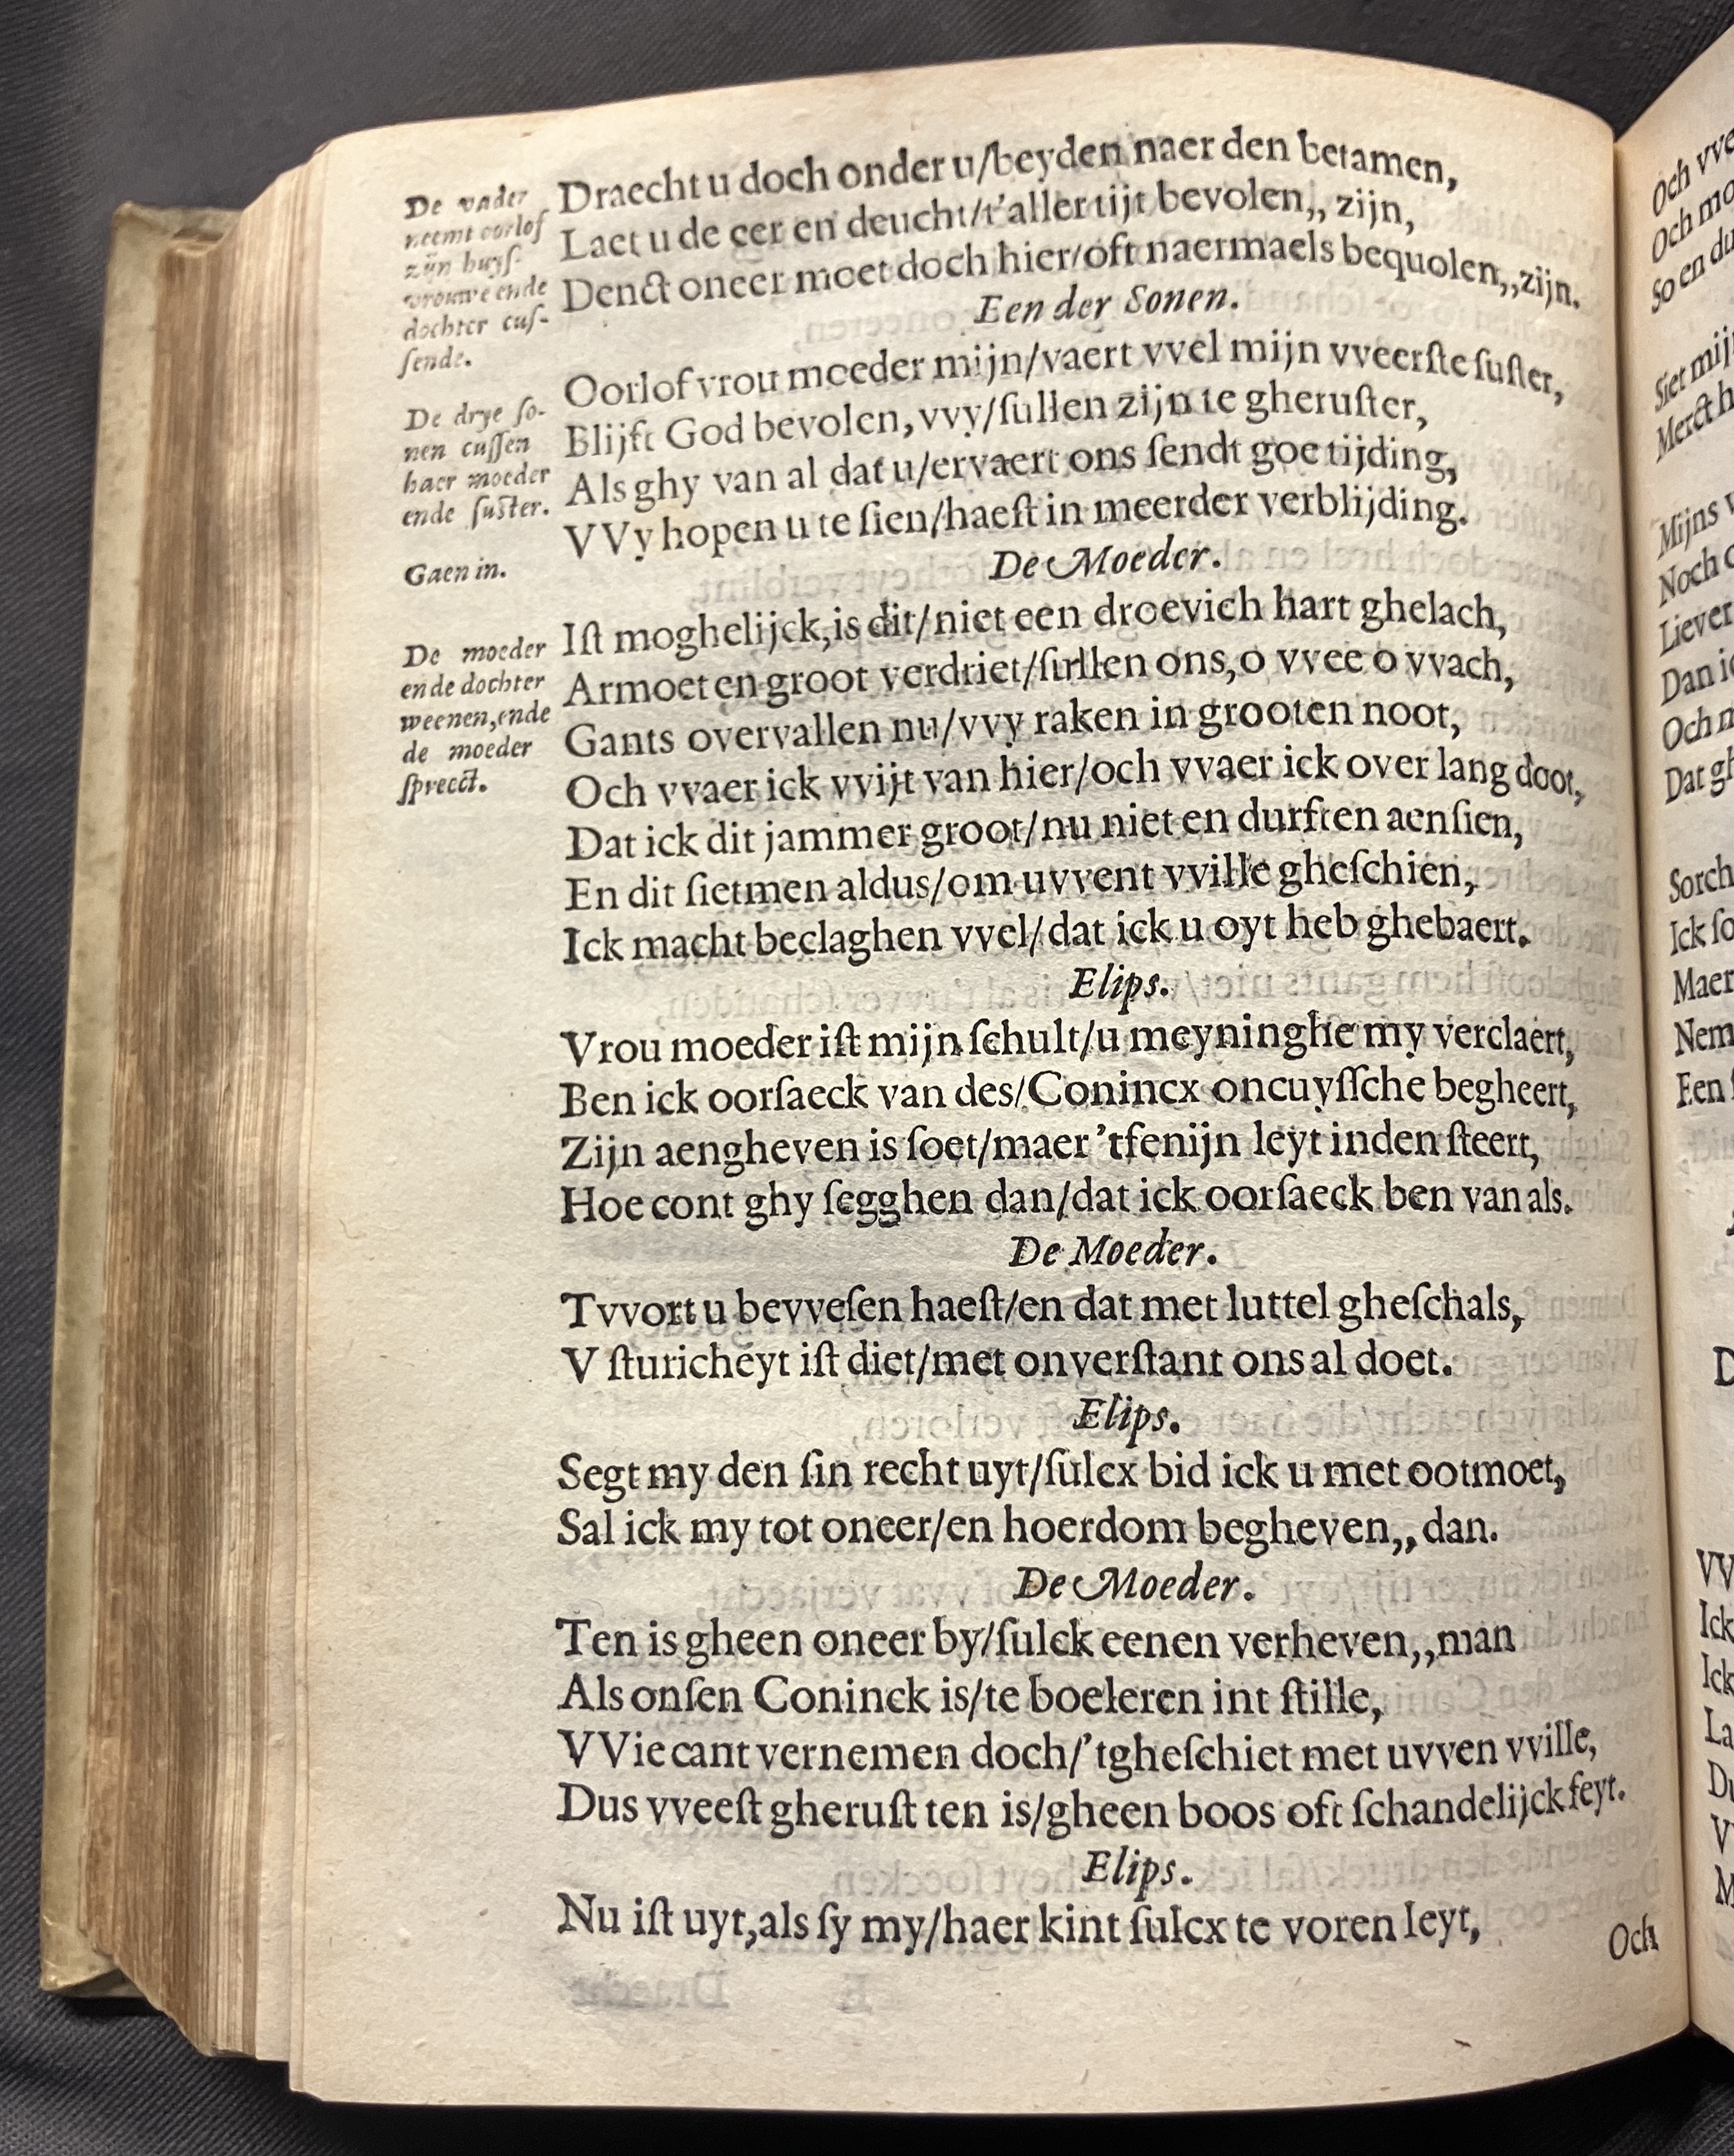 De vader
neemt oorlof
zijn huyſ-
vrouwe ende
dochter cuſ-
ſende.
Draecht u doch onder u/beyden naer den betamen,
Laet u de eer en deucht/t'aller tijt bevolen,, zijn,
Denct oneer moet doch hier/oft naermaels bequolen,,zijn.
Een der Sonen.
De drye ſo-
nen cuſſen
haer moeder
ende ſuſter.
Oorlof vrou moeder mijn/vaert vvel mijn vveerſte ſuſter,
Blijft God bevolen, vvy/ſullen zijn te gheruſter,
Als ghy van al dat u/ervaert ons ſendt goe tijding,
VVy hopen u te ſien/haeſt in meerder verblijding.
Gaen in.
De Moeder.
De moeder
ende dochter
weenen,ende
de moeder
ſpreect.
Iſt moghelijck,is dit/niet een droevich hart ghelach,
Armoet en groot verdriet/ſullen ons,o vvee o vvach,
Gants overvallen nu/vvy raken in grooten noot,
Och vvaer ick vvijt van hier/och vvaer ick over lang doot,
Dat ick dit jammer groot/nu niet en durften aenſien,
En dit ſietmen aldus/om uvvent vville gheſchien,
Ick macht beclaghen vvel/dat ick u oyt heb ghebaert.
Elips.
Vrou moeder iſt mijn ſchult/u meyninghe my verclaert,
Ben ick oorſaeck van des/Conincx oncuyſſche begheert,
Zijn aengheven is ſoet/maer 'tfenijn leyt inden ſteert,
Hoe cont ghy ſegghen dan/dat ick oorſaeck ben van als.
De Moeder.
Tvvort u bevveſen haeſt/en dat met luttel gheſchals,
V ſturicheyt iſt diet/met onverſtant ons al doet.
Elips.
Segt my den ſin recht uyt/ſulcx bid ick u met ootmoet,
Sal ick my tot oneer/en hoerdom begheven,, dan.
De Moeder.
Ten is gheen oneer by/ſulck eenen verheven,,man
Als onſen Coninck is/te boeleren int ſtille,
VVie cant vernemen doch/'tgheſchiet met uvven vville,
Dus vveeſt gheruſt ten is/gheen boos oft ſchandelijck feyt.
Elips.
Nu iſt uyt,als ſy my/haer kint ſulcx te voren leyt,
Och